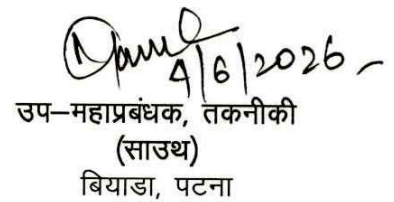 4/6/2026
उप–महाप्रबंधक, तकनीकी
(साउथ)
बियाडा, पटना